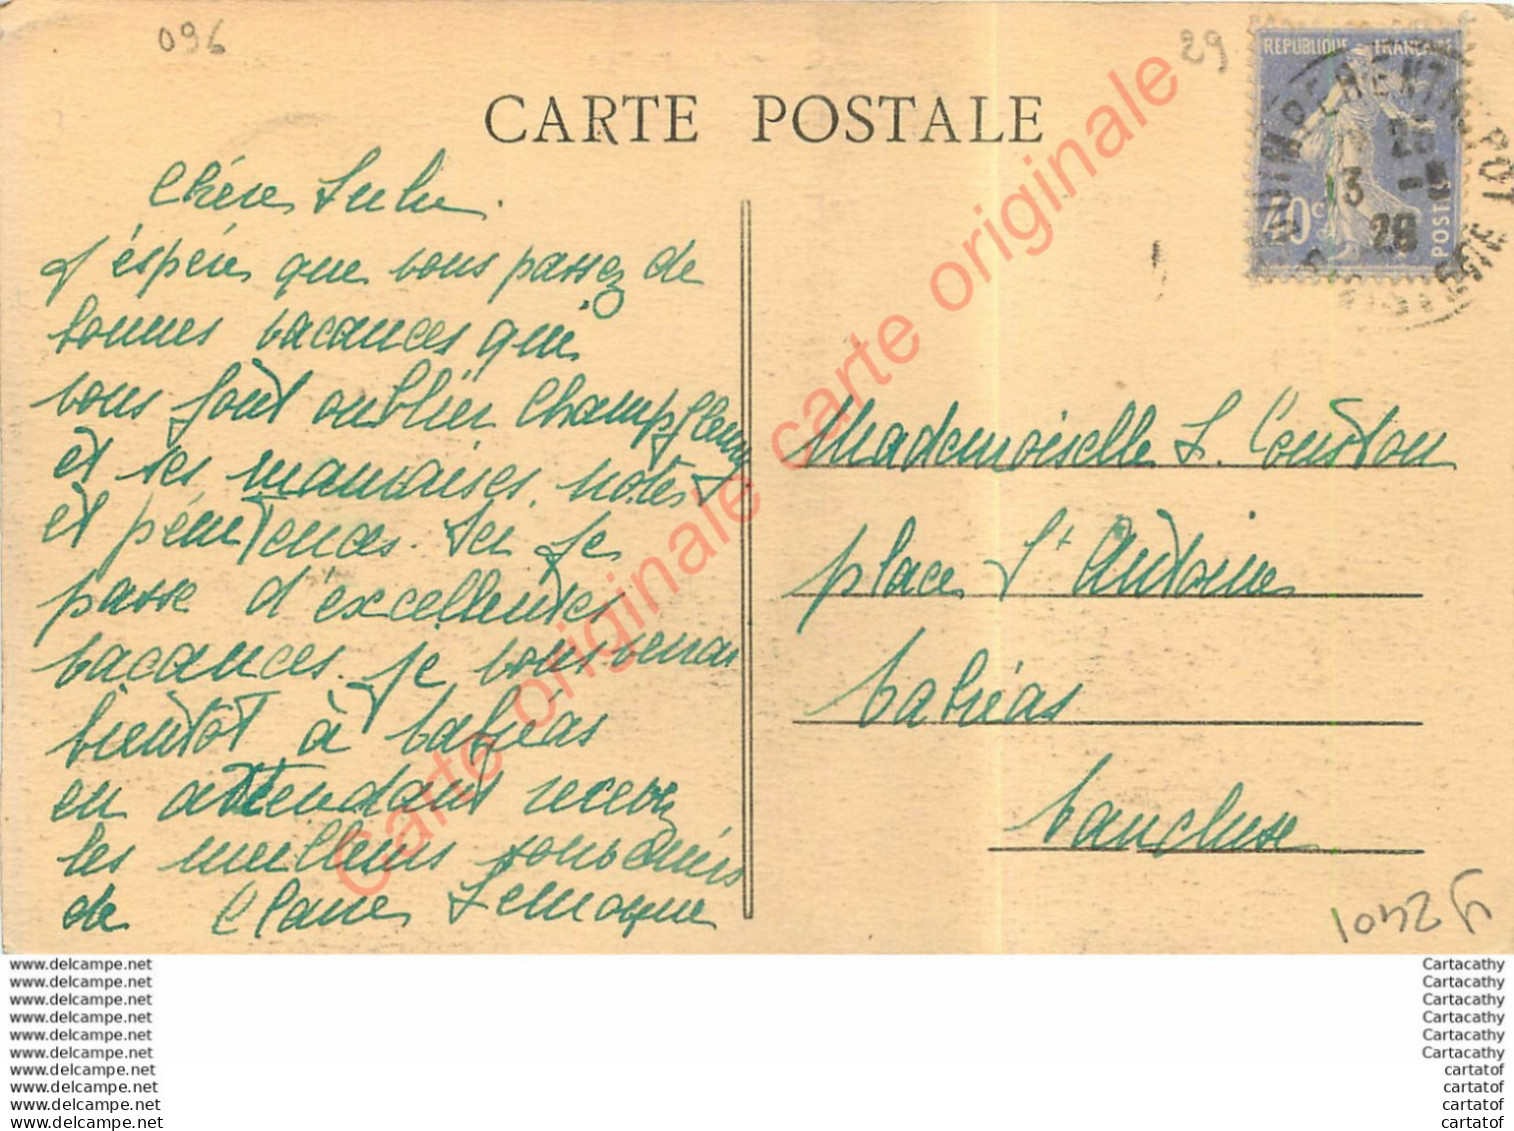 096
29
CARTE POSTALE
REPUBLIQUE FRANÇAISE
40c
POSTES
QUIMPER ENTREPOT
13
25
28
FINISTERE
Chère Lulu.
J'éspère que vous passez de
bonnes vacances qui
vous font oublier Champfleury
et ses mauvaises notes
et pénitences. Ici je
passe d'excellentes
vacances. je vous verrai
bientôt à Valréas
en attendant recevez
les meilleurs souvenirs
de Claire Lemoque
Mademoiselle L. Coustou
place St Antoine
Valréas
Vaucluse
Carte originale carte originale
www.delcampe.net
www.delcampe.net
www.delcampe.net
www.delcampe.net
www.delcampe.net
www.delcampe.net
www.delcampe.net
www.delcampe.net
www.delcampe.net
www.delcampe.net
Cartacathy
Cartacathy
Cartacathy
Cartacathy
Cartacathy
Cartacathy
cartatof
cartatof
cartatof
cartatof